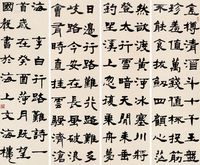 金樽清酒斗十千玉盤
珍羞直萬錢停杯投箸
不能食拔劍四顧心茫
然欲渡黃河冰塞川將
登太行雪滿山閑來垂
釣坐溪上忽復乘舟夢
日邊行路難行路難多
岐路今安在長風破浪
會有時直挂雲帆濟滄
海
李白行路難詩一
首
國程書於海上文海樓